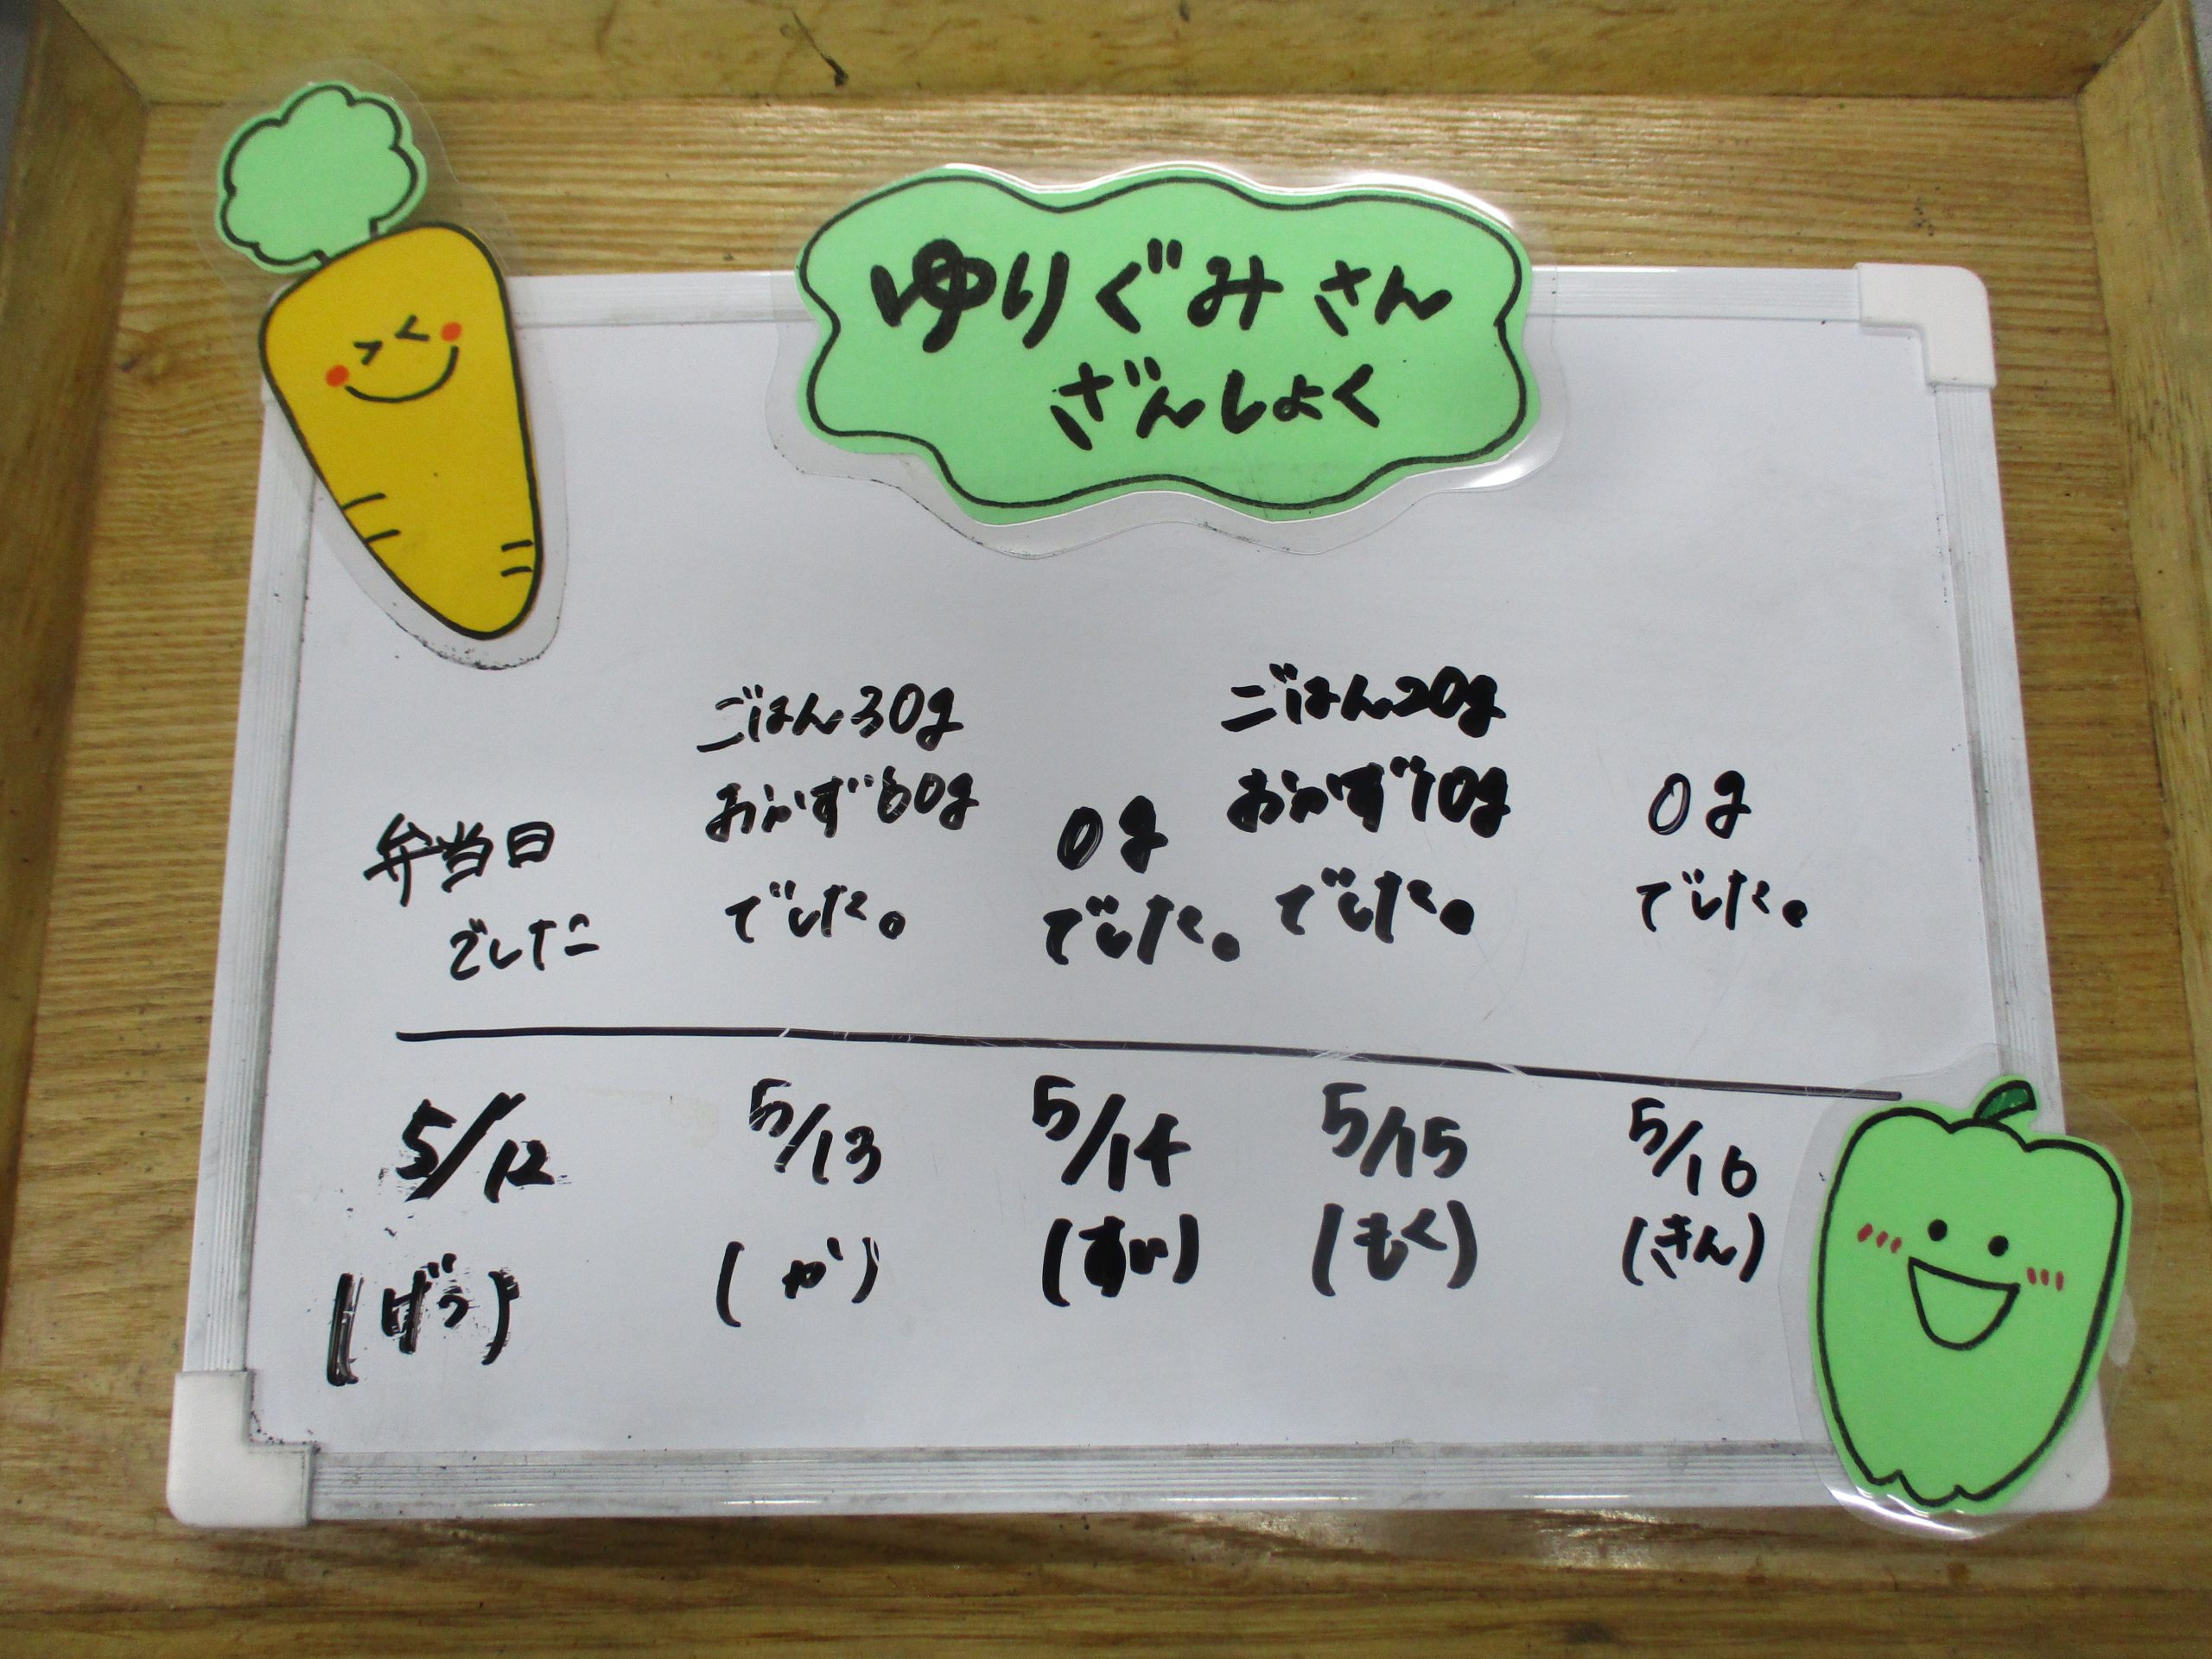 ゆりぐみさん
ざんしょく
弁当日
でした
ごはん30g
おかず60g
でした。
0g
でした。
ごはん20g
おかず10g
でした。
0g
でした。
5/12
(げつ)
5/13
(か)
5/14
(すい)
5/15
(もく)
5/16
(きん)